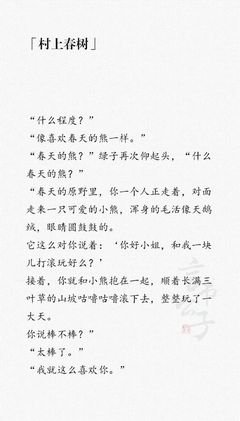 「村上春树」
“什么程度？”
“像喜欢春天的熊一样。”
“春天的熊？”绿子再次仰起头，“什么
春天的熊？”
“春天的原野里，你一个人正走着，对面
走来一只可爱的小熊，浑身的毛活像天鹅
绒，眼睛圆鼓鼓的。
它这么对你说着：‘你好小姐，和我一块
儿打滚玩好么？’
接着，你就和小熊抱在一起，顺着长满三
叶草的山坡咕噜咕噜滚下去，整整玩了一
大天。
你说棒不棒？”
“太棒了。”
“我就这么喜欢你。”